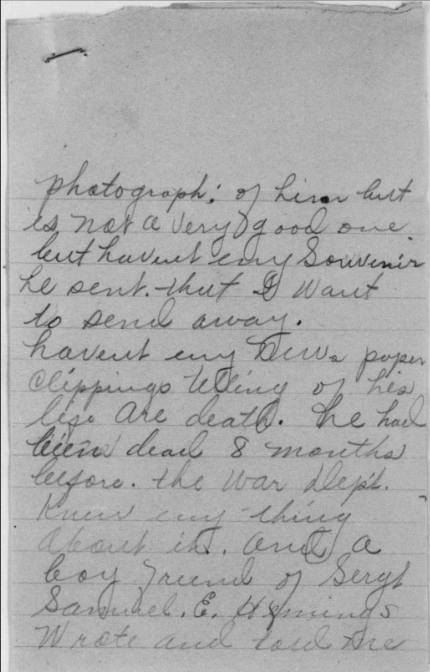 photograph: of him but
is not a very good one.
but havent eny Souvenir
he sent. that I Want
to send away.
havent eny News paper
Clippings telling of his
life are death. he had
been dead 8 months
before. the War Dept.
Knew eny-thing
about it. and a
boy friend of Sergt
Samuel. E. Hemings
Wrote and told me